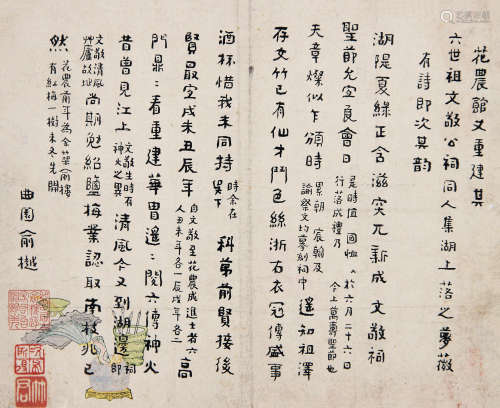 花農館丈重建其
六世祖文敬公祠同人集湖上落之夢薇
有詩即次其韻
湖隄夏綠正含滋突兀新成文敬祠
聖節允宜良會日
是時值國恤於六月二十六日
行落成禮乃今上萬壽聖節也
天章燦似乍頒時
累朝宸翰及
諭祭文均摹刻祠中
遙知祖澤
存文竹已有仙才鬥色絲浙右衣冠傳盛事
酒杯惜我未同持
時余在
吳下
科第前賢接後
賢最宜戌未丑辰年
自文敬至花農成進士者六
人丑未年各一辰戌年各二
高
門鼎鼎看重建華冑遙遙閱六傳神火
昔曾見江上
文敬生時有
神火之異
清風今又到湖邊
祠即
文敬清風
草廬故址
尚期勉紹鹽梅業認取南枝兆已
然
花農前年為余築俞樓
有紅梅一樹未冬先開
曲園俞樾